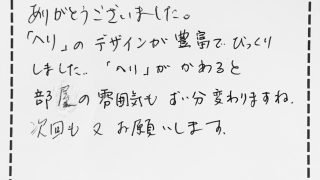 ありがとうございました。
「ヘリ」の デザインが 豊富で びっくり
しました.. 「ヘリ」が かわると
部屋の雰囲気も ずい分変わりますね.
次回も 又 お願いします.